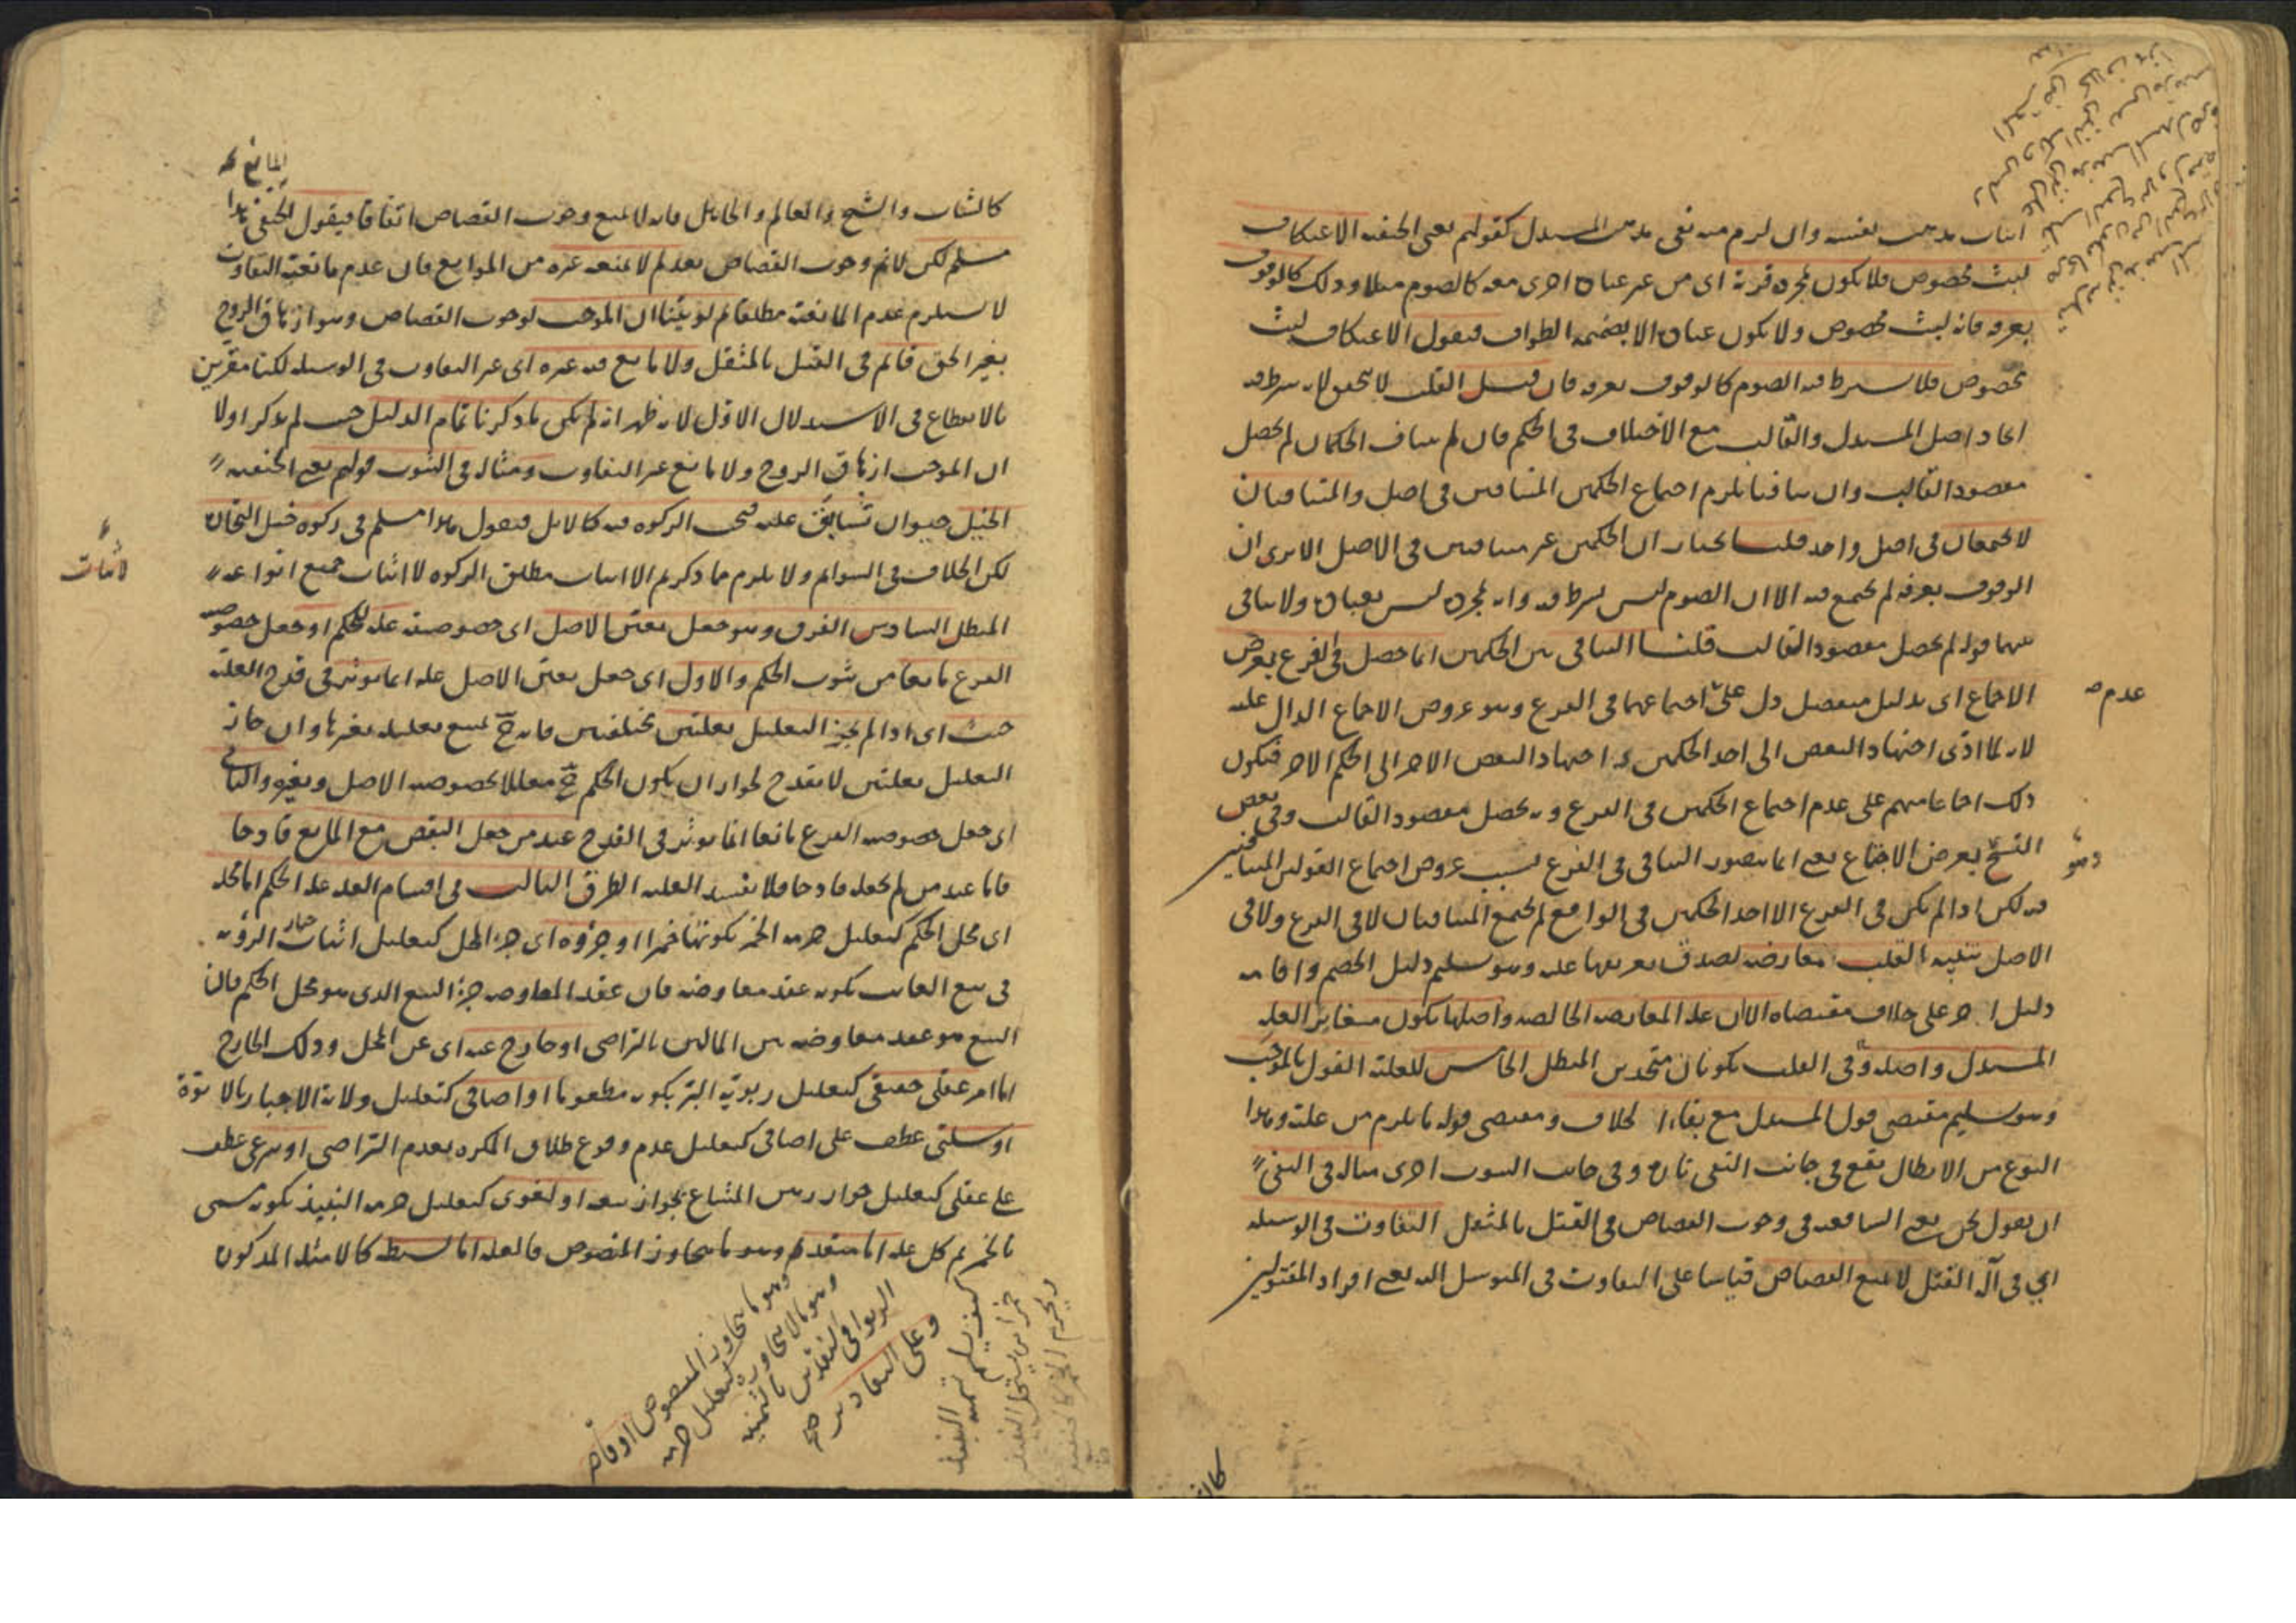 اثبات مذهب نفسه وان لزم منه نفى مذهب المستدل كقولهم يعنى الحنفيه الاعتكاف
لبث مخصوص فلا يكون بمجرده قربة اى من غير عبادة اخرى معه كالصوم مثلا وذلك كالوقوف
بعرفه فانه لبث مخصوص ولا يكون عبادة الا بضميمه الطواف فيقول الاعتكاف لبث
مخصوص فلا يشترط فيه الصوم كالوقوف بعرفه فان قيل القلب لا يتحقق لانه شرط فيه
اتحاد اصل المستدل والقالب مع الاختلاف فى الحكم فان لم يتناف الحكمان لم يحصل
مقصود القالب وان تنافيا يلزم اجتماع الحكمين المتنافيين فى اصل والمتنافيان
لا يجتمعان فى اصل واحد قلنا نختار ان الحكمين غير متنافيين فى الاصل الا يرى ان
الوقوف بعرفه لم يجتمع فيه الا ان الصوم ليس بشرط فيه وانه بمجرده ليس بعبادة ولا تنافى
بينهما قوله لم يحصل مقصود القالب قلنا التنافى بين الحكمين انما حصل فى الفرع بعرض
الاجماع اى بدليل منفصل دل على اجتماعهما فى الفرع وهو عروض الاجماع الدال عليه
عدم
لانه لما ادّى اجتهاد البعض الى احد الحكمين واجتهاد البعض الاخر الى الحكم الاخر فيكون
ذلك اجماعا منهم على عدم اجتماع الحكمين فى الفرع وبه يحصل مقصود القالب وفى بعض
النسخ بعرض الاجتماع يعنى انما يتصور التنافى فى الفرع بسبب عروض اجتماع القولين المتنافيين
وهو
فيه لكن اذا لم يكن فى الفرع الا احد الحكمين فى الواقع لم يجتمع المتنافيان لا فى الفرع ولا فى
الاصل تنبيه القلب معارضه لصدق تعريفها عليه وهو تسليم دليل الخصم واقامه
دليل اخر على خلاف مقتضاه الا ان علة المعارضه الخالصه واصلها يكون مغاير العله
المستدل واصله وفى القلب يكونان متحدين المبطل الخامس للعلة القول بالموجب
وهو تسليم مقتضى قول المستدل مع بقاء الخلاف ومقتضى قوله ما يلزم من علته وهذا
النوع من الابطال يقع فى جانب النفى تارة وفى جانب الثبوت اخرى مثاله فى النفى
ان يقول نحن يعنى الشافعيه فى وجوب القصاص فى القتل بالمثقل التفاوت فى الوسيله
اى فى آلة القتل لا يمنع القصاص قياسا على التفاوت فى المتوسل اليه يعنى افراد المقتولين
كالشاب والشيخ والعالم والجاهل فانه لا يمنع وجوب القصاص اتفاقا فيقول الحنفى هذا
المانع
مسلم لكن لا نم وجوب القصاص بعد لم لا يمنعه غيره من الموانع فان عدم مانعية التفاوت
لا يستلزم عدم المانعية مطلقا ثم لو بيّنا ان الموجب لوجوب القصاص وهو ازهاق الروح
بغير الحق قائم فى القتل بالمثقل ولا مانع فيه غيره اى غير التفاوت فى الوسيله لكنا مقرين
بالانقطاع فى الاستدلال الاول لانه ظهر انه لم يكن ما ذكرنا تمام الدليل حيث لم يذكر اولا
ان الموجب ازهاق الروح ولا مانع غير التفاوت ومثاله فى الثبوت قولهم يعنى الحنفيه
الخيل حيوان تسابق عليه فتجب الزكوه فيه كالابل فيقول هذا مسلم فى زكوه خيل التجارة
لكن الخلاف فى السوائم ولا يلزم مما ذكرتم الا اثبات مطلق الزكوه لا اثبات جميع انواعه
لاثبات
المبطل السادس الفرق وهو جعل تعيّن الاصل اى خصوصيته علة للحكم او جعل خصوصيه
الفرع مانعا من ثبوت الحكم والاول اى جعل تعين الاصل علة انما يوثر فى قدح العلة
حيث اى اذا لم يجز التعليل بعلتين مختلفتين فانه ح يمنع تعليله بغيرها وان جاز
التعليل بعلتين لا يقدح لجواز ان يكون الحكم ح معللا بخصوصيه الاصل وبغيره والثانى
اى جعل خصوصيه الفرع مانعا انما يوثر فى القدح عند من جعل النقض مع المانع قادحا
فاما عند من لم يجعله قادحا فلا يفسد العليه الطرف الثالث فى اقسام العله علة الحكم اما محله
اى محل الحكم كتعليل حرمه الخمر بكونها خمرا او جزؤه اى جزء المحل كتعليل اثبات خيار الرؤيه
فى بيع الغائب بكونه عقد معاوضه فان عقد المعاوضه جزء البيع الذى هو محل الحكم فان
البيع هو عقد معاوضه بين المالين بالتراضى او خارج عنه اى عن المحل وذلك الخارج
اما امر عقلى حقيقى كتعليل ربوية البر بكونه مطعوما او اضافى كتعليل ولاية الاجبار بالابوة
او سلبى عطف على اضافى كتعليل عدم وقوع طلاق المكره بعدم التراضى او شرعى عطف
على عقلى كتعليل جواز رهن المشاع بجواز بيعه او لغوى كتعليل حرمه النبيذ بكونه يسمى
بالخمر ثم كل علة اما متعديه وهو ما يتجاوز المنصوص فالعله اما بسيطه كالامثله المذكوره
وهو ما يتجاوز المنصوص او قاصره
وهو ما لا يتجاوزه كتعليل حرمه
الربوا فى النقدين بالثمنيه
وعلى التقادير صح